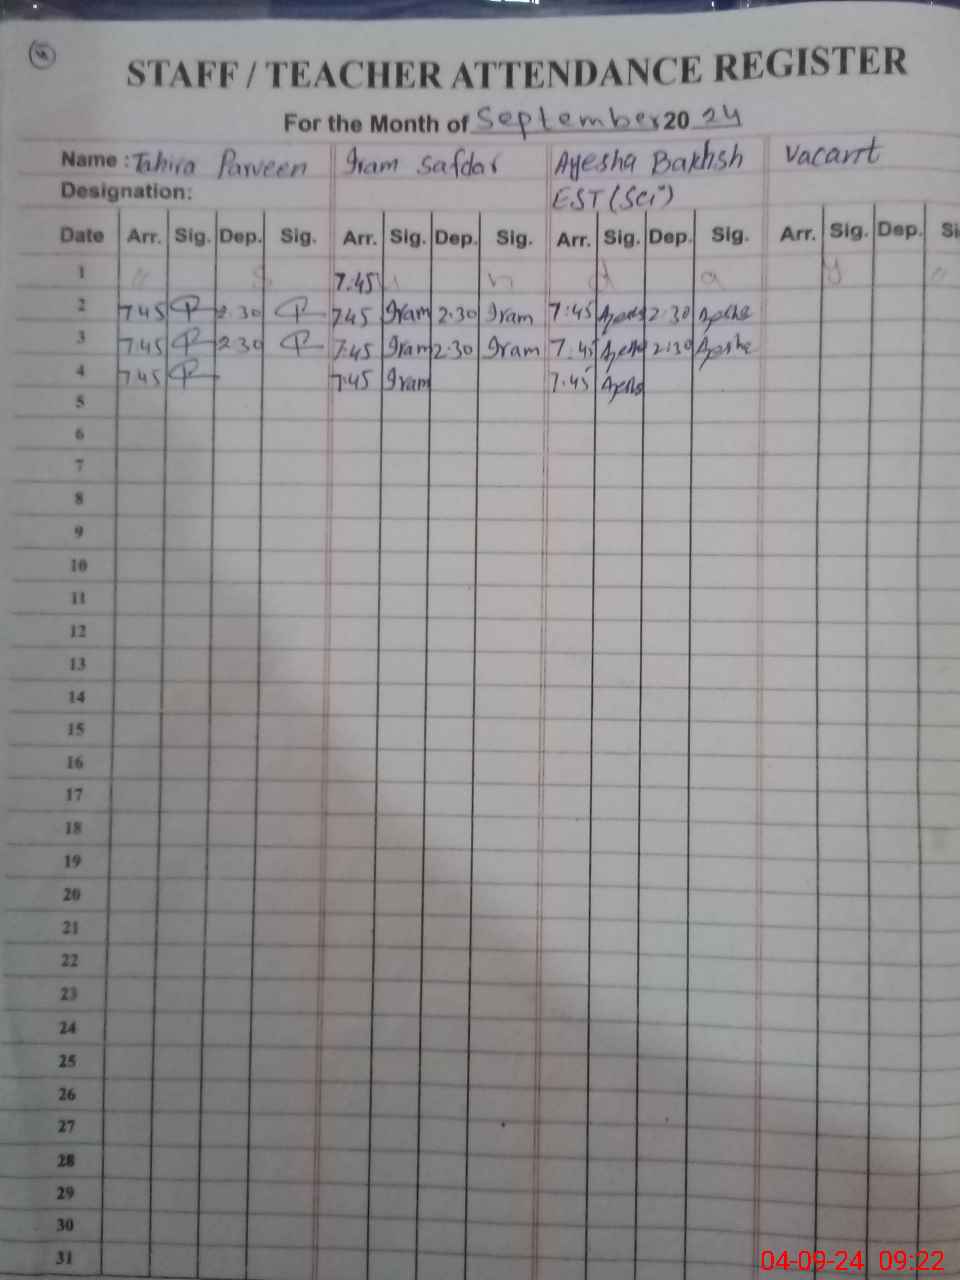 STAFF / TEACHER ATTENDANCE REGISTER
For the Month of September 20 24
Name : Tahira Parveen Iram Safdar Ayesha Bakhsh Vacant
Designation: EST (Sci)
Date Arr. Sig. Dep. Sig. Arr. Sig. Dep. Sig. Arr. Sig. Dep. Sig. Arr. Sig. Dep. Si
1 " S 7:45 u n d a y "
2 7:45 2:30 7:45 Iram 2:30 Iram 7:45 Ayesha 2:30 Ayesha
3 7:45 2:30 7:45 Iram 2:30 Iram 7:45 Ayesha 2:30 Ayesha
4 7:45 7:45 Iram 7:45 Ayesha
5
6
7
8
9
10
11
12
13
14
15
16
17
18
19
20
21
22
23
24
25
26
27
28
29
30
31
04-09-24 09:22